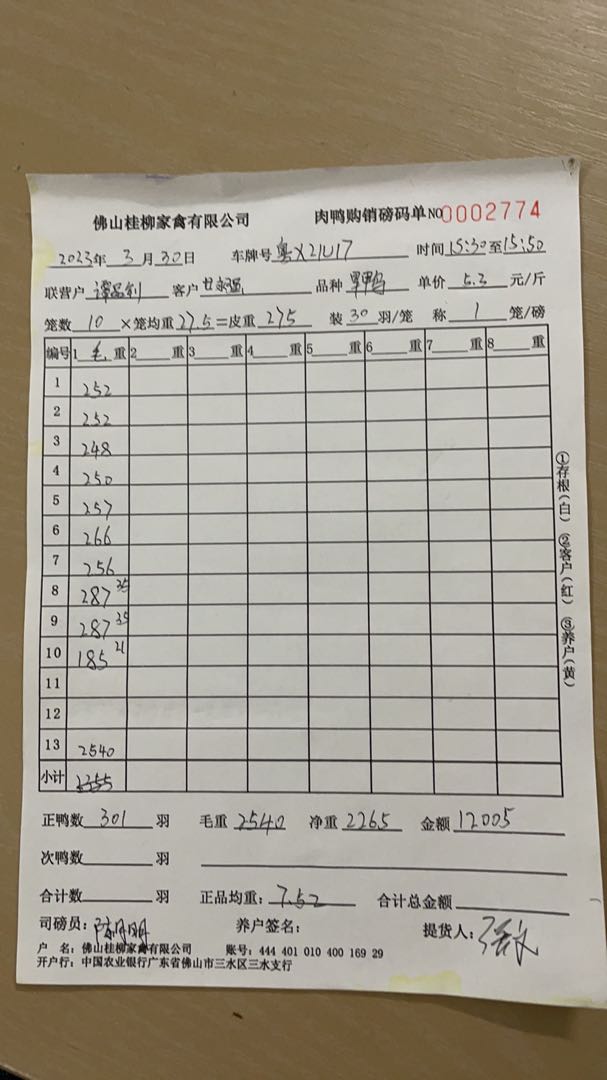 佛山桂柳家禽有限公司 肉鸭购销磅码单 NO0002774
2023年 3月 30日 车牌号 粤X21U17 时间 15:30至15:50
联营户 客户 品种 黑鸭 单价 5.3 元/斤
笼数 10 ×笼均重 27.5=皮重 275 装 30 羽/笼 称 1 笼/磅
编号 1 毛 重 2 重 3 重 4 重 5 重 6 重 7 重 8 重
1 252
2 252
3 248
4 250
5 257
6 266
7 256
8 287 35
9 287 35
10 185 21
11
12
13 2540
小计
①存根(白) ②客户(红) ③养户(黄)
正鸭数 301 羽 毛重 2540 净重 2265 金额 12005
次鸭数 羽
合计数 羽 正品均重: 7.52 合计总金额
司磅员: 养户签名: 提货人:
户 名: 佛山桂柳家禽有限公司 账号: 444 401 010 400 169 29
开户行: 中国农业银行广东省佛山市三水区三水支行